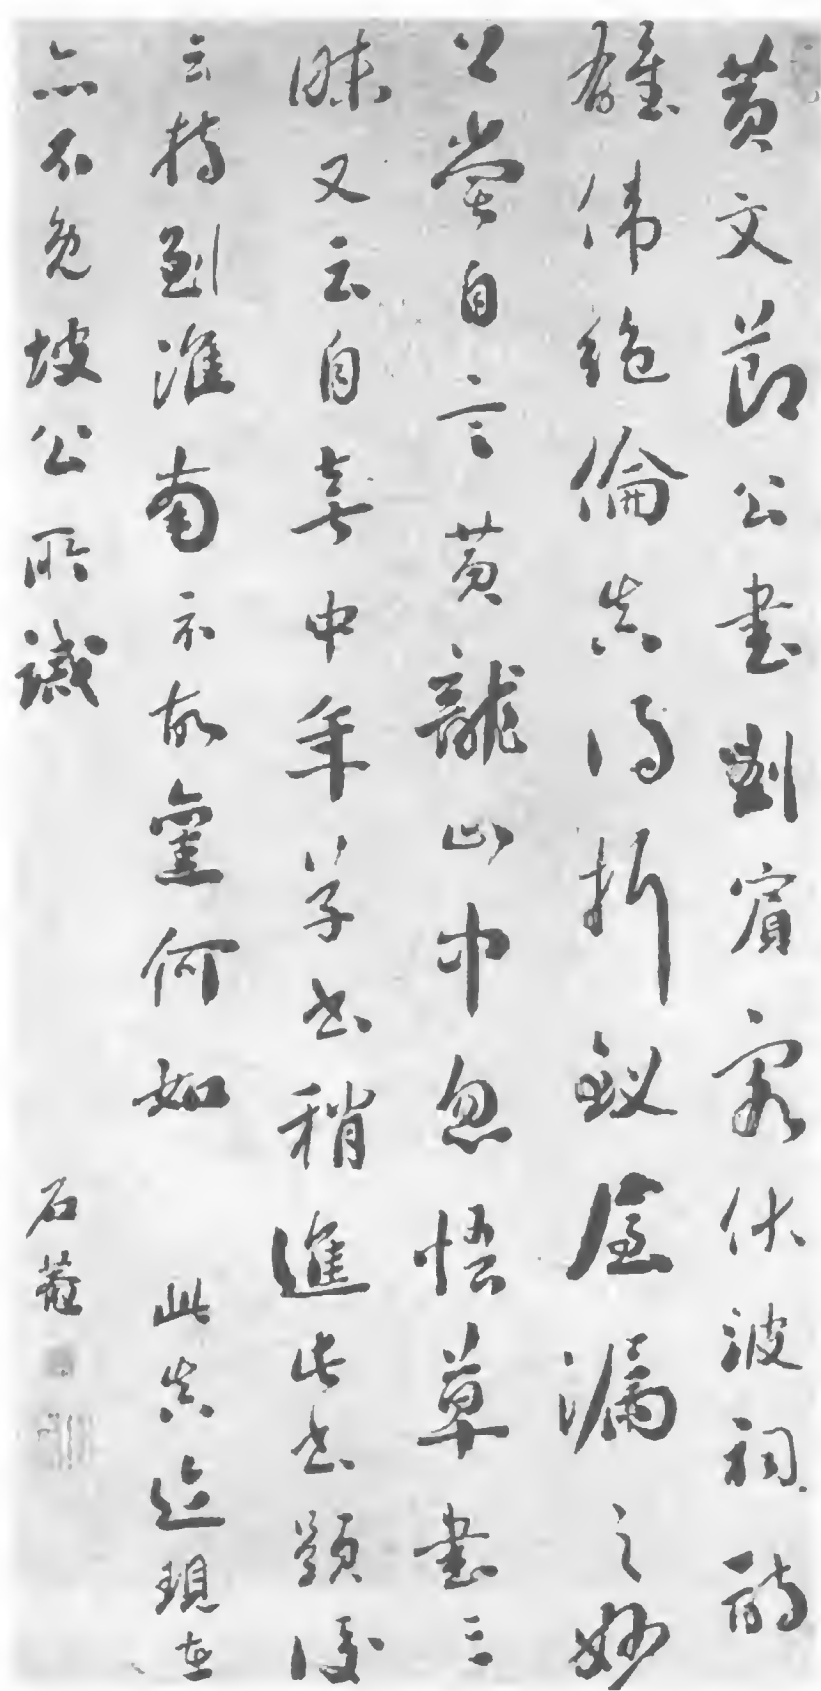 黄文節公書劉賓客伏波祠詩
雄偉絶倫真得折釵屋漏之妙
公嘗自言黄龍山中忽悟草書三
昧又云自喜中年草書稍進此書題後
云持到淮南示故舊何如 此真迹現在
亦不免坡公所譏
石菴